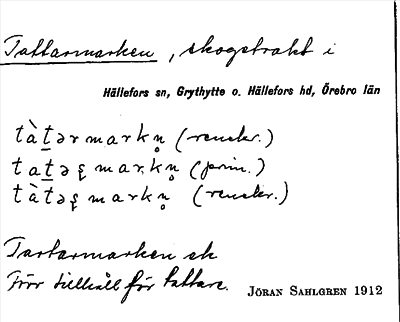 Tattarmarken, skogstrakt i
Hällefors sn, Grythytte o. Hällefors hd, Örebro län
tàt̠ər markn̥ (renskr.)
tat̠əş markn̥ (prim.)
tàtəş markn̥ (renskr.)
Tartarmarken sk
Förr tillhåll för tattare.
JÖRAN SAHLGREN 1912